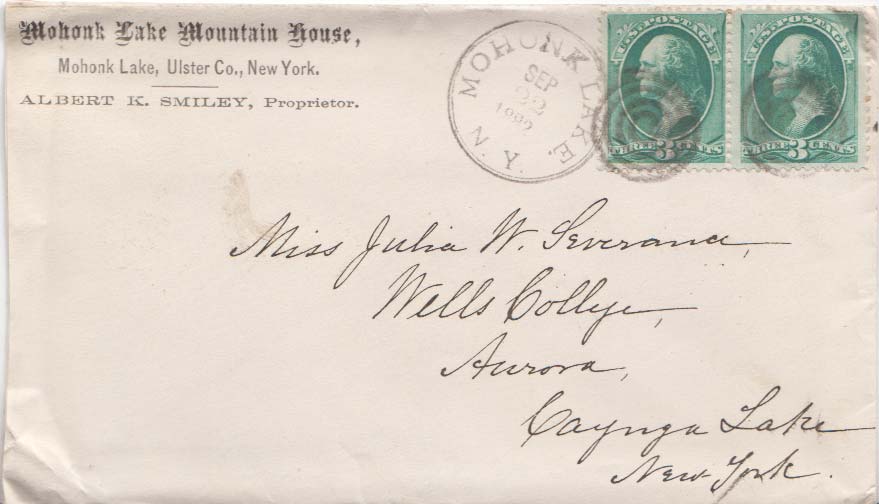 Mohonk Lake Mountain House,
Mohonk Lake, Ulster Co., New York.
ALBERT K. SMILEY, Proprietor.
MOHONK LAKE. N.Y.
SEP
22
U.S. POSTAGE
THREE 3 CENTS
U.S. POSTAGE
THREE 3 CENTS
Miss Julia W. Severance,
Wells College,
Aurora,
Cayuga Lake
New-York.